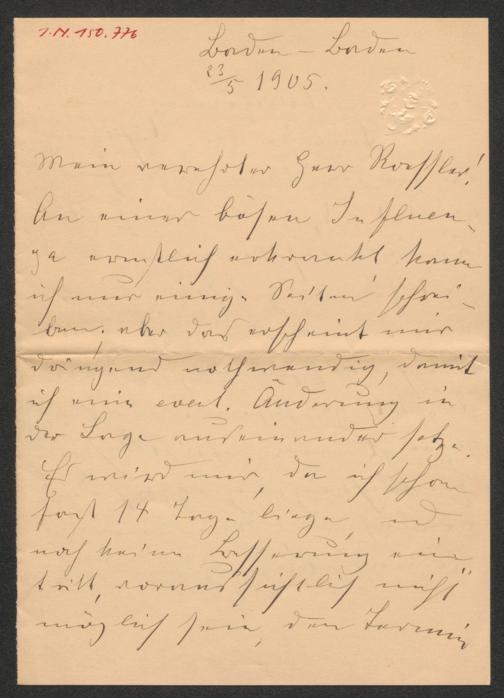 I.N. 150.776
Baden-Baden
23/5 1905.
Mein verehrter Herr Roessler!
An einer bösen Influen-
za ernstlich erkrankt kann
ich nur einige Seiten schrei-
ben, aber das erscheint mir
dringend nothwendig, damit
ich eine event. Änderung in
der Lage auseinander setze.
Es wird mir, da ich schon
fast 14 Tage liege und
noch keine Besserung ein
tritt, voraussichtlich nicht
möglich sein, den Termin